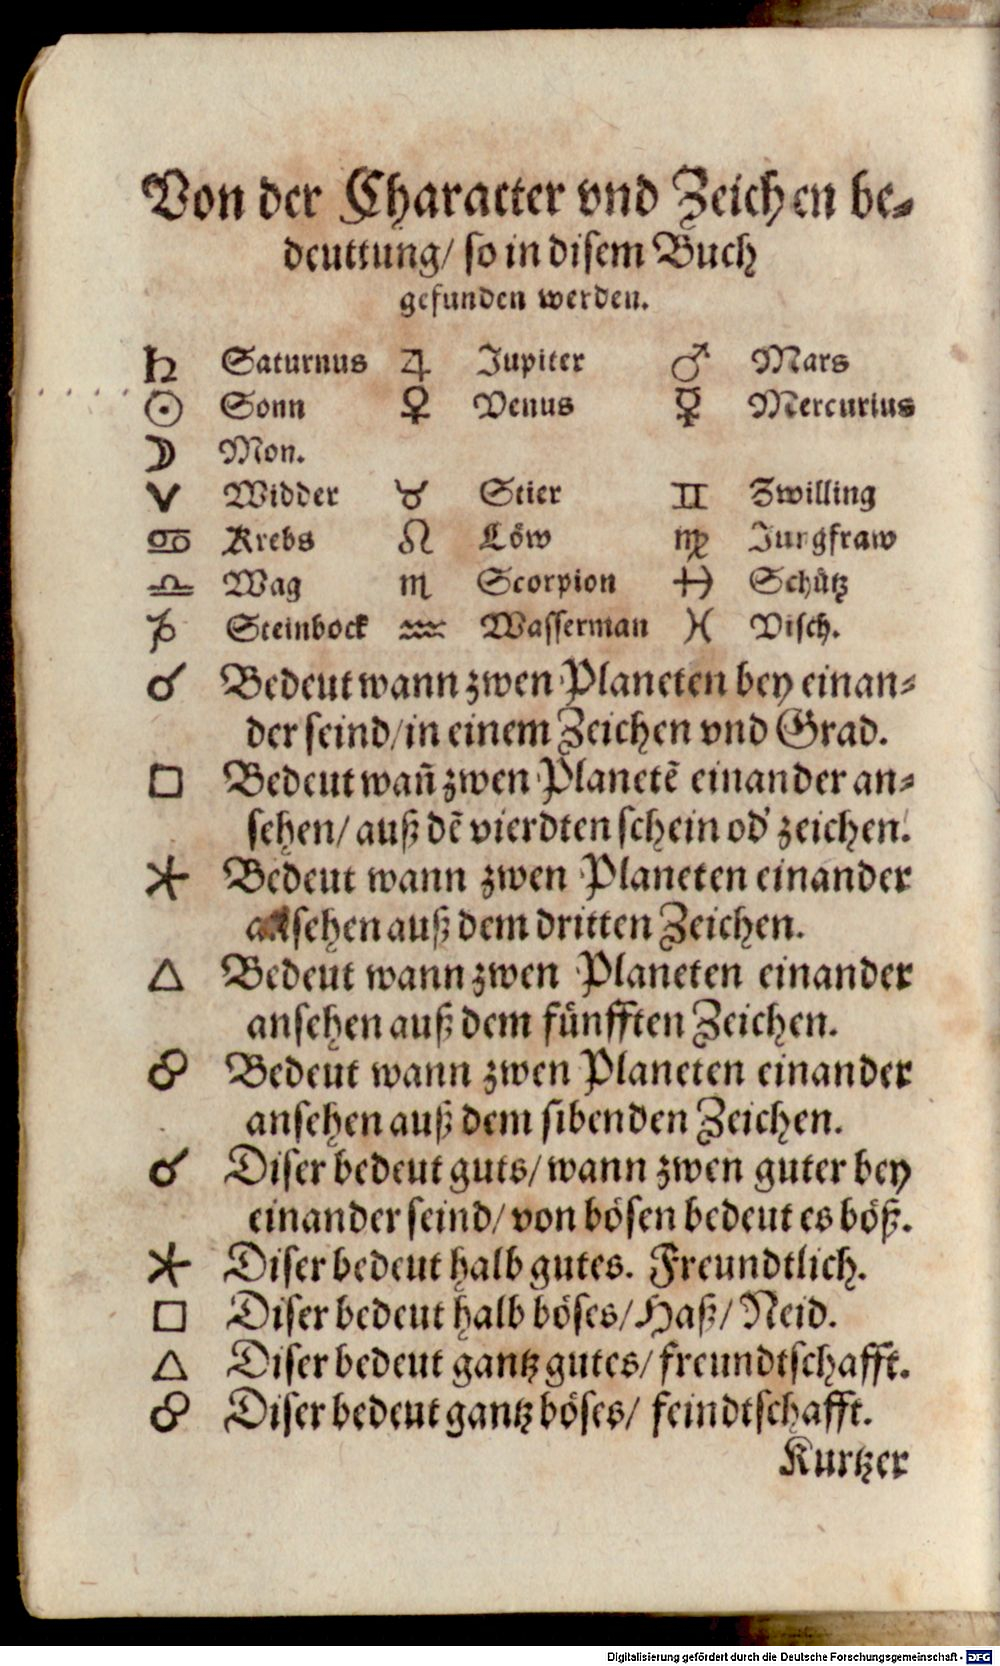 Von der Character vnd Zeichen be⸗
deuttung/ so in disem Buch
gefunden werden.
♄ Saturnus ♃ Jupiter ♂ Mars
☉ Sonn ♀ Venus ☿ Mercurius
☽ Mon.
♈ Widder ♉ Stier ♊ Zwilling
♋ Krebs ♌ Löw ♍ Jungfraw
♎ Wag ♏ Scorpion ♐ Schütz
♑ Steinbock ♒ Wasserman ♓ Visch.
☌ Bedeut wann zwen Planeten bey einan⸗
der seind/ in einem Zeichen vnd Grad.
□ Bedeut wañ zwen Planetẽ einander an⸗
sehen/ auß dẽ vierdten schein od' zeichen.
⚹ Bedeut wann zwen Planeten einander
ansehen auß dem dritten Zeichen.
△ Bedeut wann zwen Planeten einander
ansehen auß dem fünfften Zeichen.
☍ Bedeut wann zwen Planeten einander
ansehen auß dem sibenden Zeichen.
☌ Diser bedeut guts/ wann zwen guter bey
einander seind/ von bösen bedeut es böß.
⚹ Diser bedeut halb gutes. Freundtlich.
□ Diser bedeut halb böses/ Haß/ Neid.
△ Diser bedeut gantz gutes/ freundtschafft.
☍ Diser bedeut gantz böses/ feindtschafft.
Kurtzer
Digitalisierung gefördert durch die Deutsche Forschungsgemeinschaft - DFG